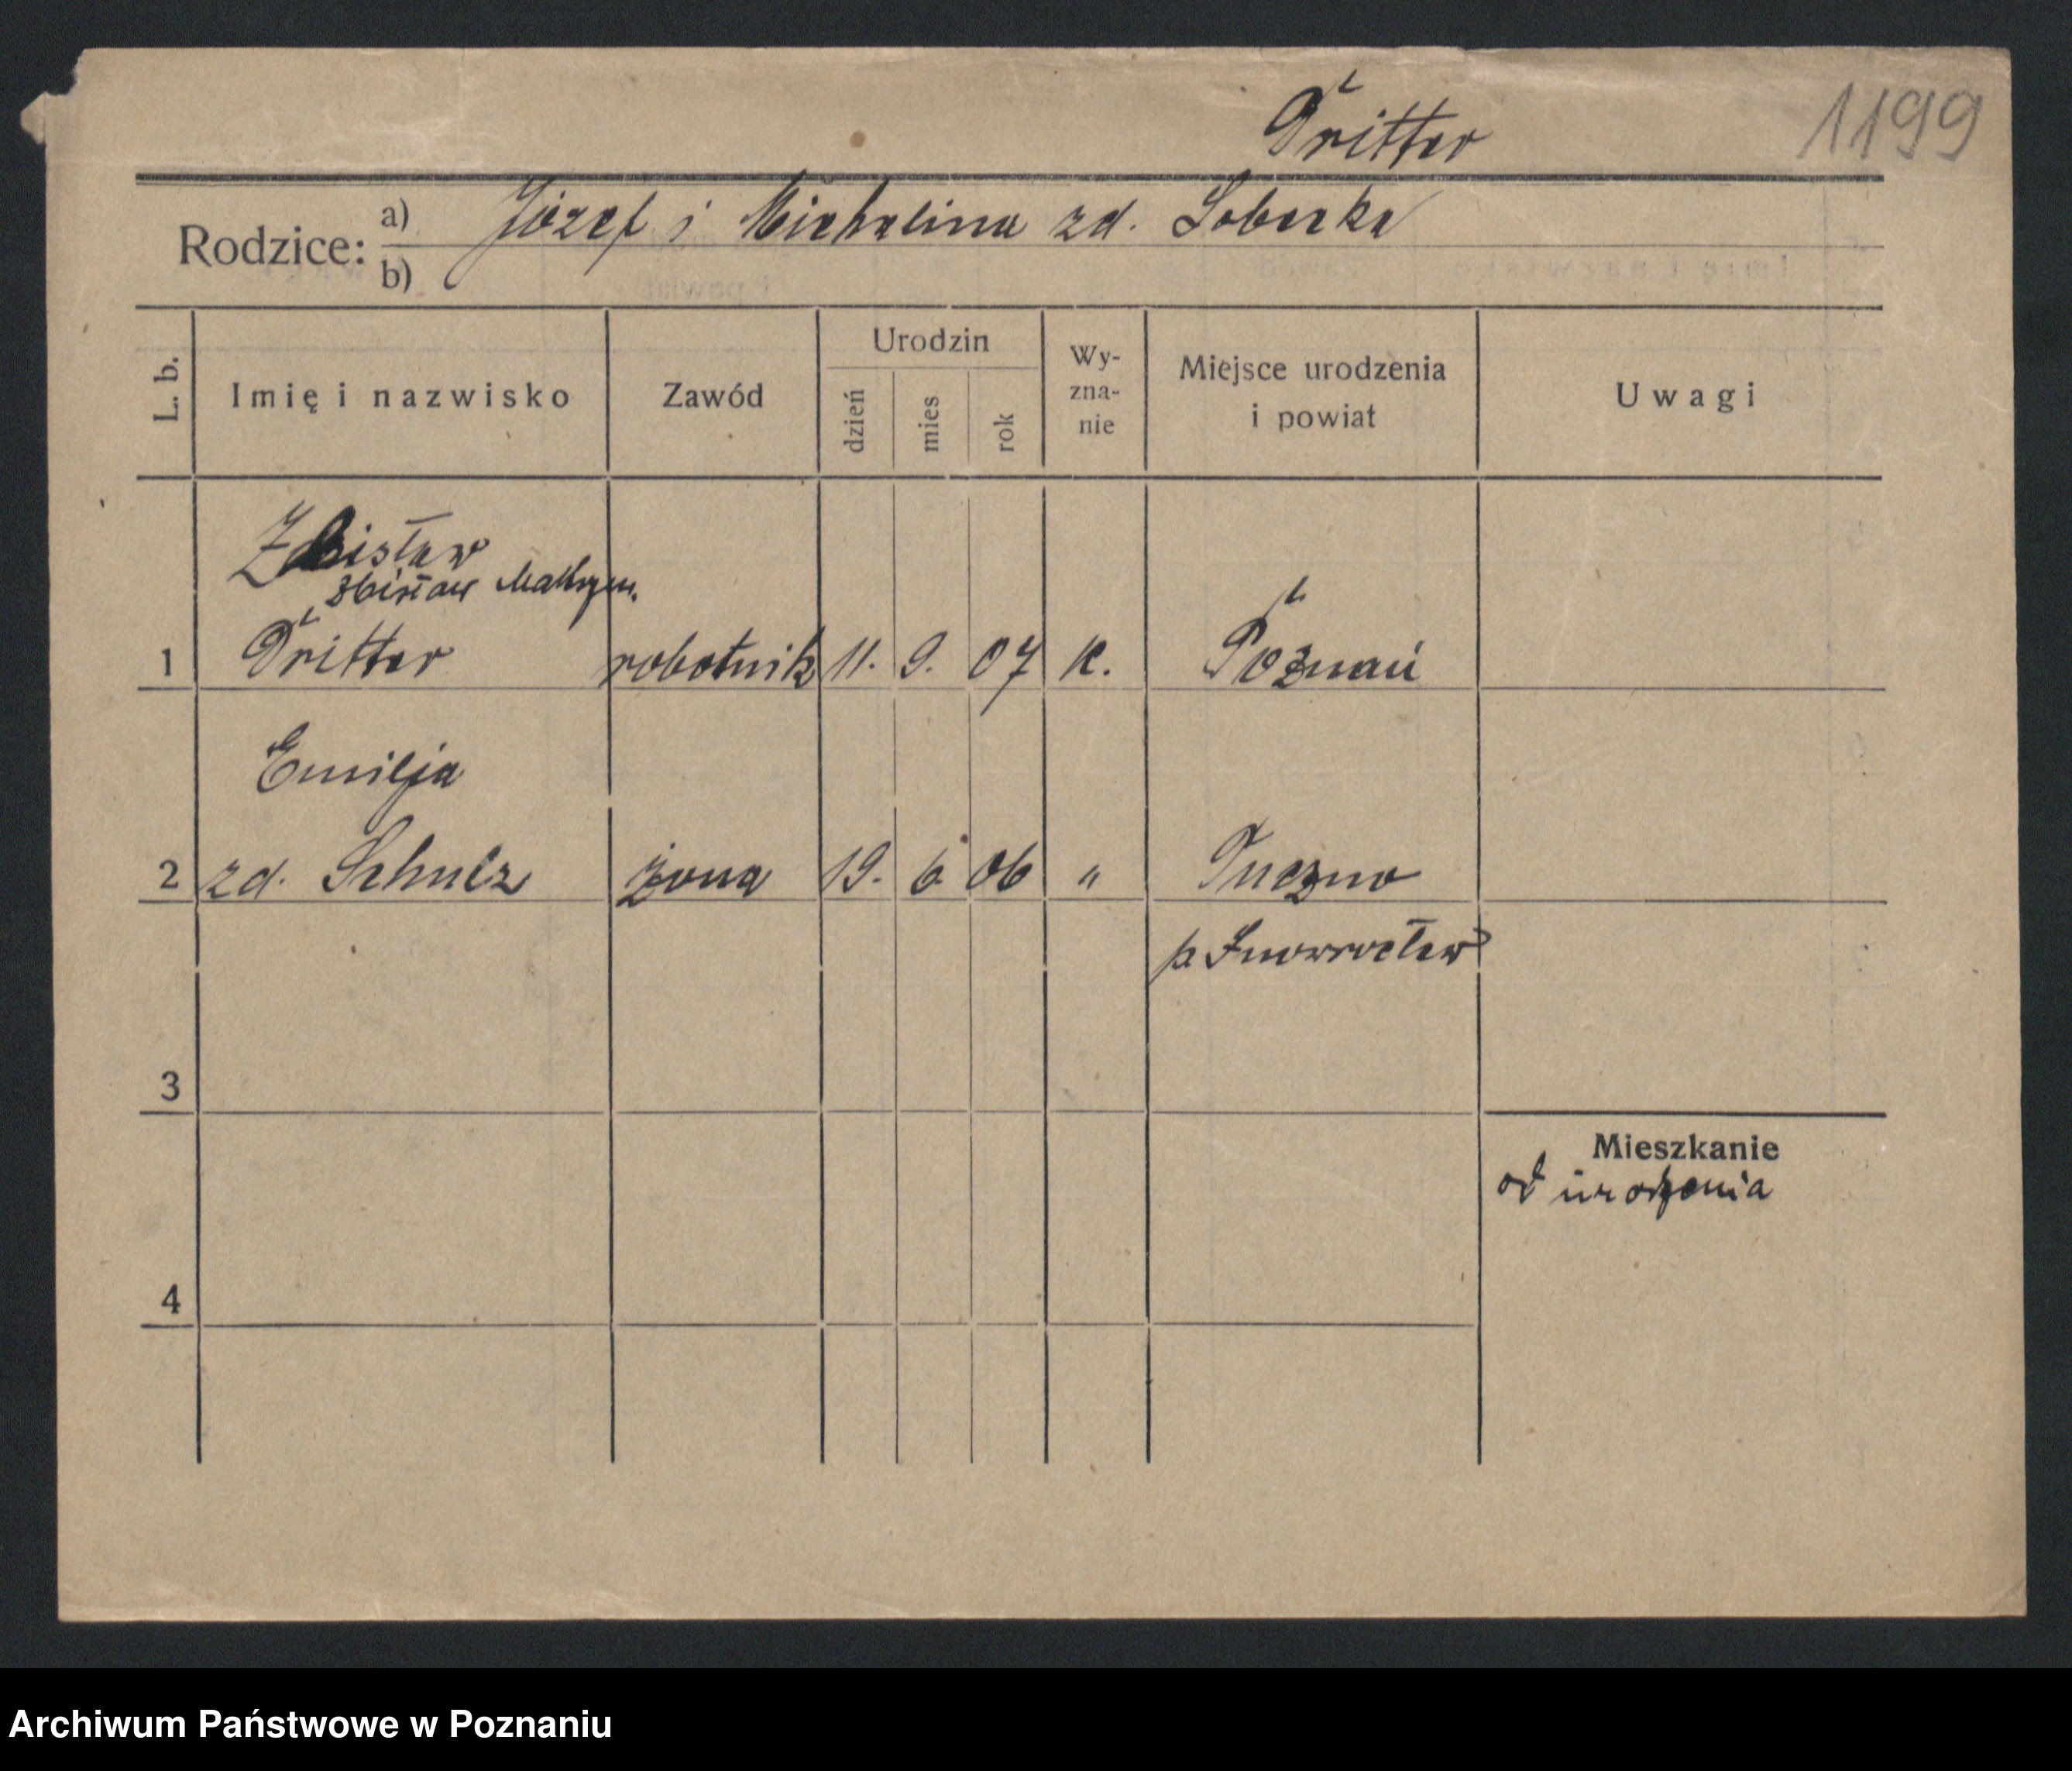 Dritter
1199
Rodzice:
a) Józef i Michalina zd. Soberka
b)
L. b.
Imię i nazwisko
Zawód
Urodzin
dzień
mies
rok
Wy-
zna-
nie
Miejsce urodzenia
i powiat
Uwagi
Zbisław
Zbisław
1 Dritter robotnik 11. 9. 07 K. Poznań
Emilja
2 zd. Schulz żona 19. 6. 06 " Tuczno
p. Inowrocław
3
Mieszkanie
od urodzenia
4
Archiwum Państwowe w Poznaniu